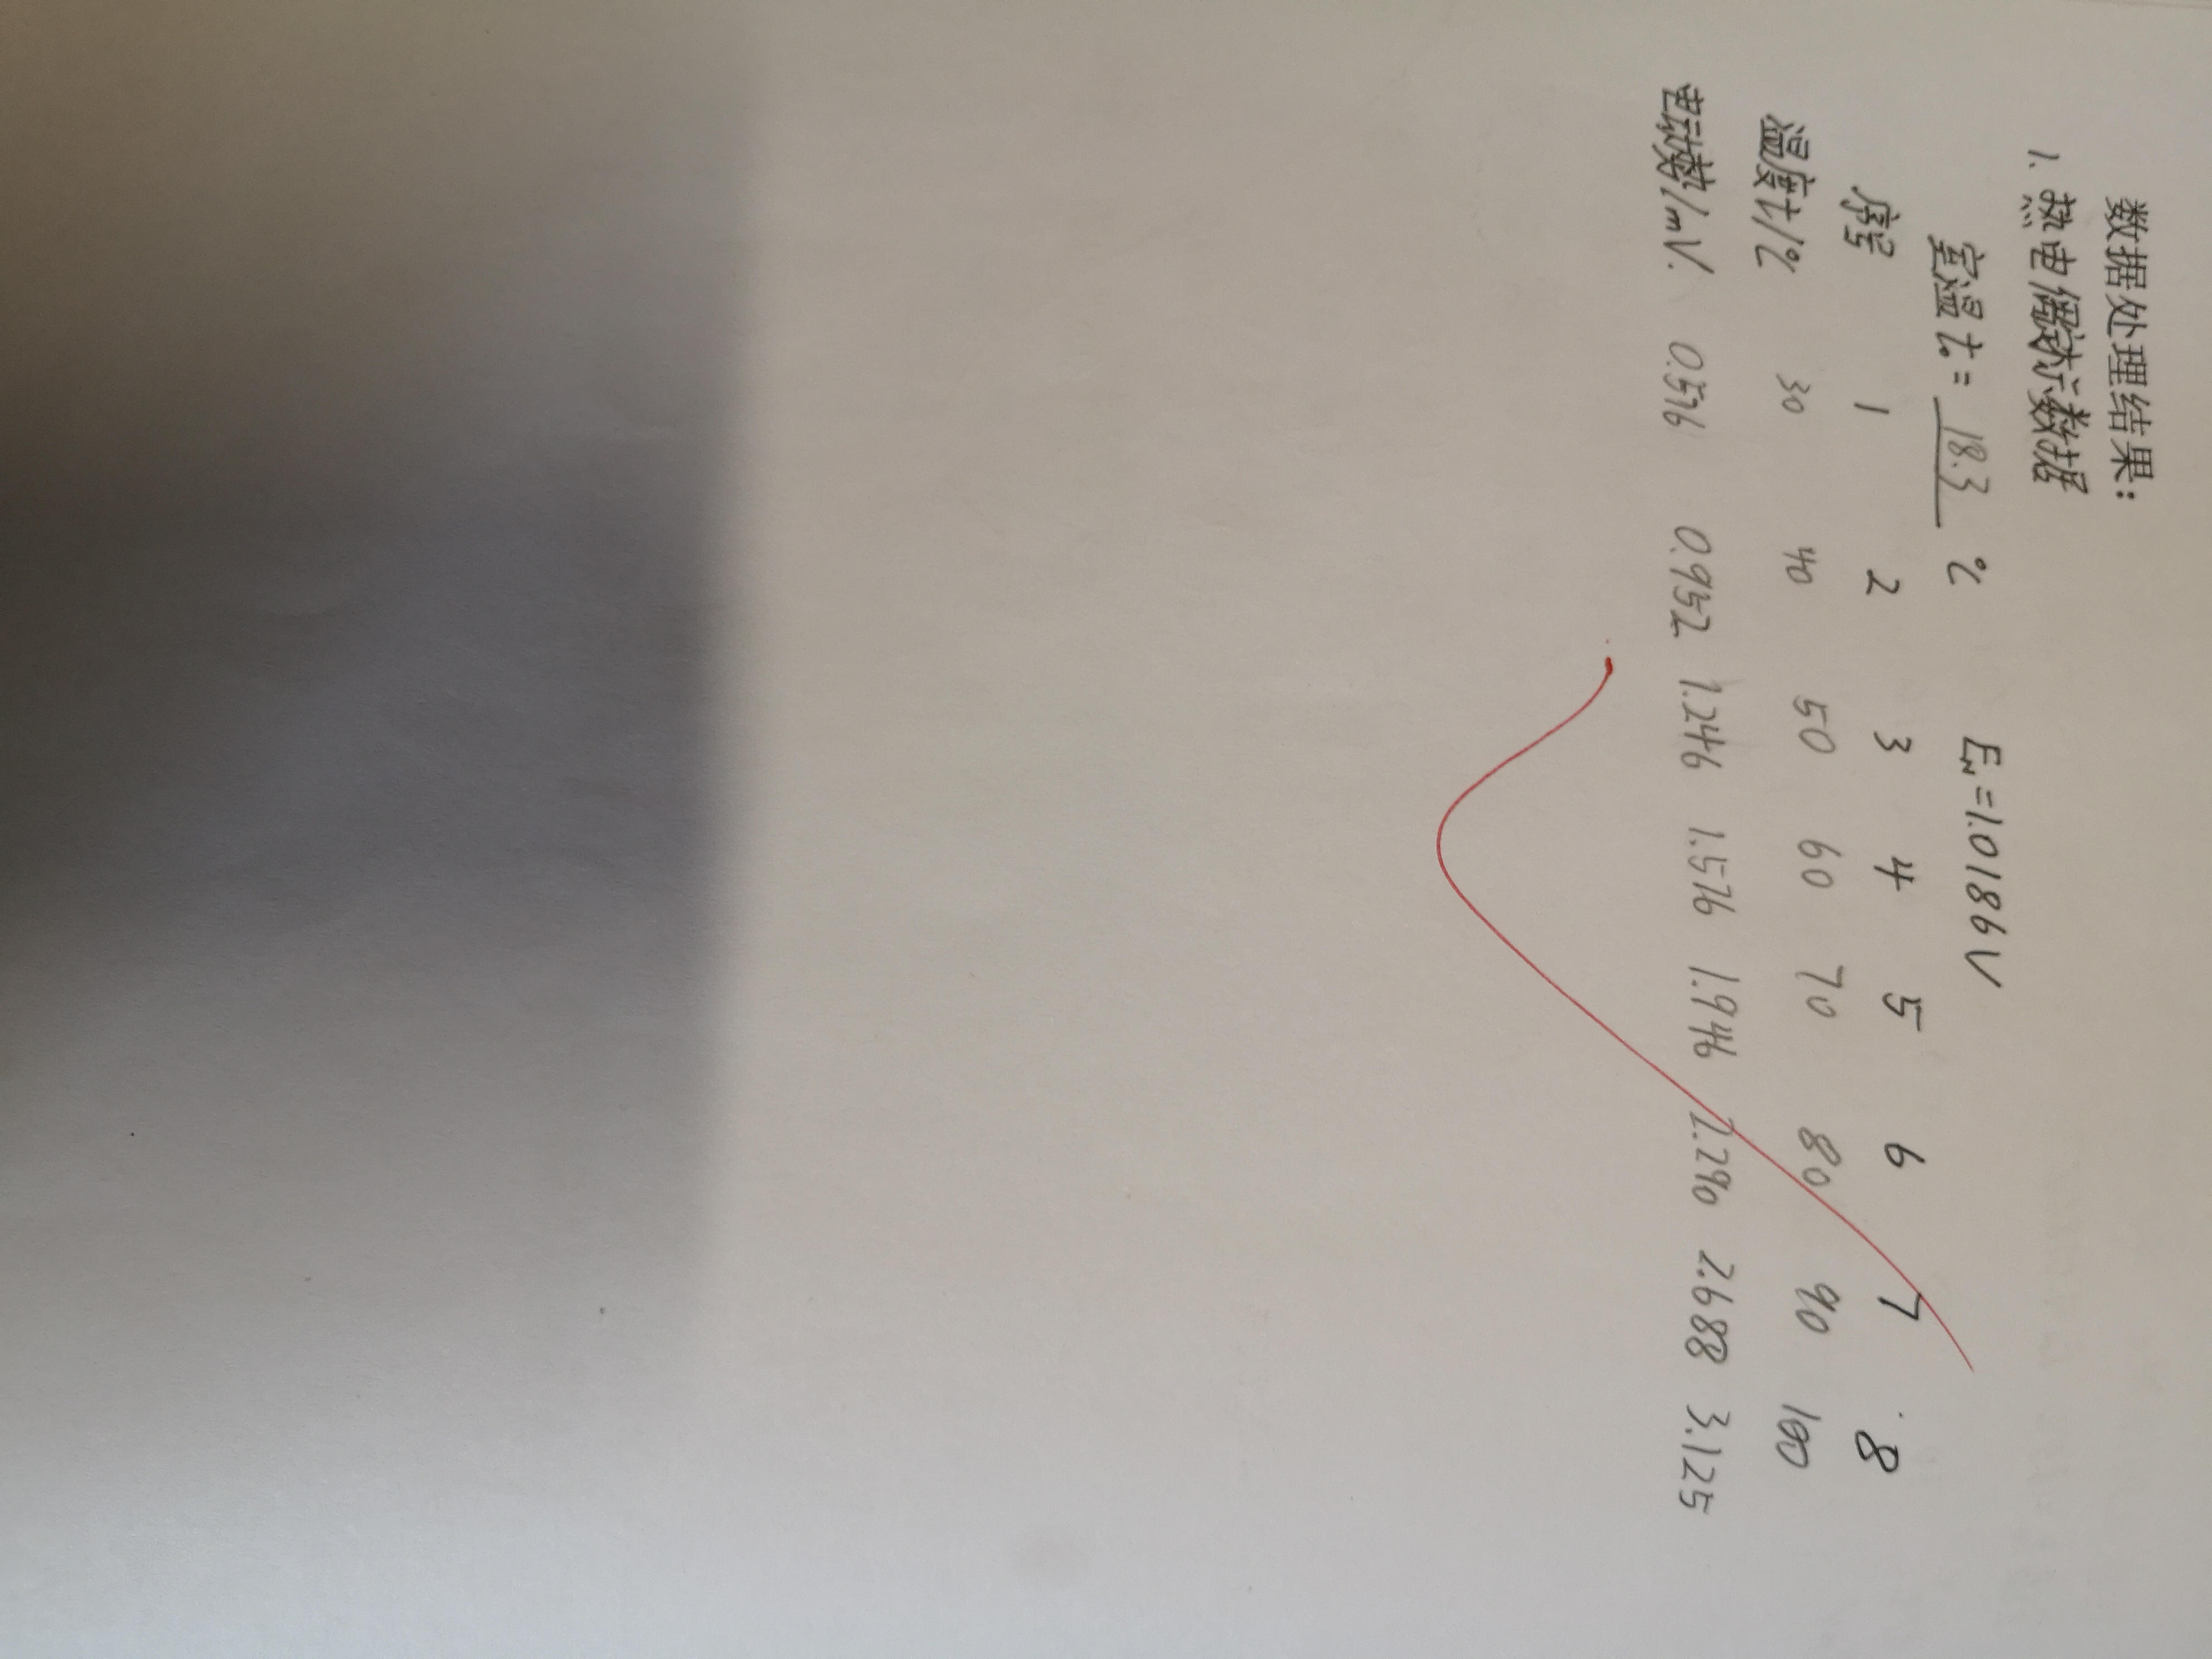 数据处理结果:
1. 热电偶标示数据
室温 t₀ = 18.3 ℃ E_N = 1.0186V
序号 1 2 3 4 5 6 7 8
温度t/℃ 30 40 50 60 70 80 90 100
电动势/mV. 0.576 0.952 1.246 1.576 1.946 2.290 2.688 3.125